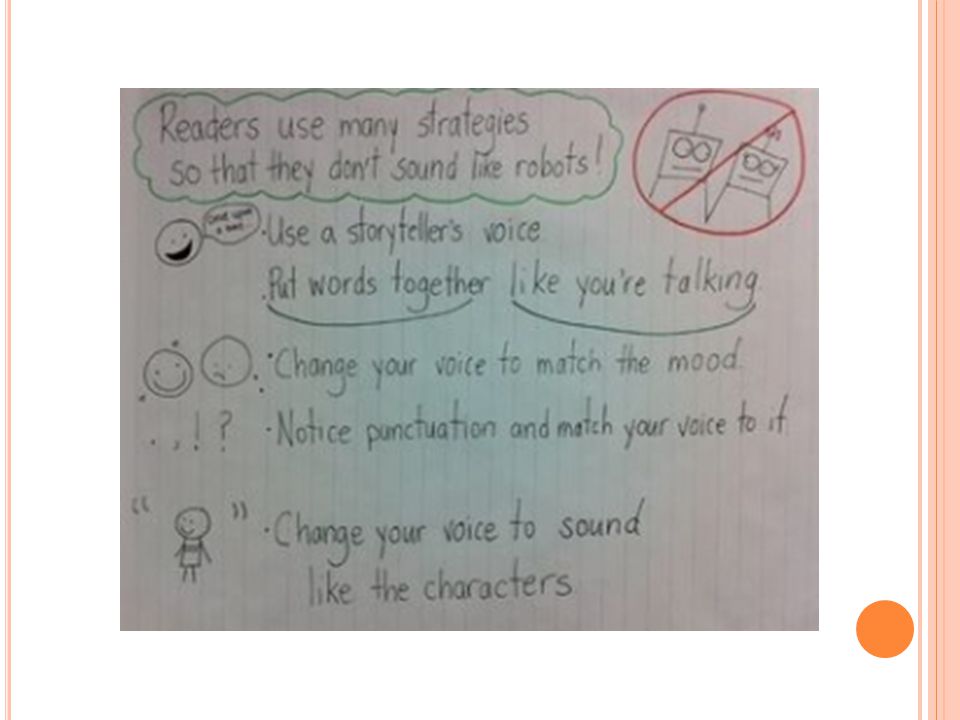 Readers use many strategies
so that they don't sound like robots!
· Use a storyteller's voice
· Put words together like you're talking.
· Change your voice to match the mood.
. , ! ? · Notice punctuation and match your voice to it
" " · Change your voice to sound
like the characters